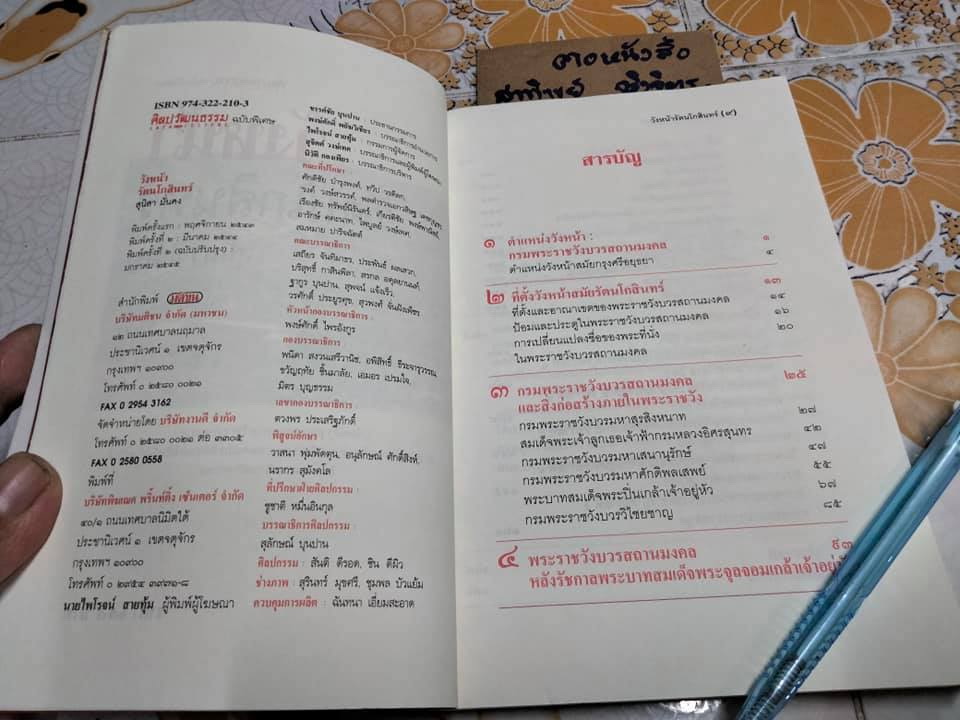 ตาหนังสือ
ISBN 974-322-210-3
ศิลปวัฒนธรรม ฉบับพิเศษ
วังหน้า
รัตนโกสินทร์
สุนิสา มั่นคง
พิมพ์ครั้งแรก : พฤศจิกายน ๒๕๔๓
พิมพ์ครั้งที่ ๒ : มีนาคม ๒๕๔๔
พิมพ์ครั้งที่ ๒ (ฉบับปรับปรุง) :
มกราคม ๒๕๔๕
สำนักพิมพ์ มติชน
บริษัทมติชน จำกัด (มหาชน)
๑๒ ถนนเทศบาลนฤมาล
ประชานิเวศน์ ๑ เขตจตุจักร
กรุงเทพฯ ๑๐๙๐๐
โทรศัพท์ ๐ ๒๕๘๐ ๐๐๒๑
FAX 0 2954 3162
จัดจำหน่ายโดย บริษัทงานดี จำกัด
โทรศัพท์ ๐ ๒๕๘๐ ๐๐๒๑ ต่อ ๓๓๐๕
FAX 0 2580 0558
พิมพ์ที่
บริษัทพิฆเณศ พริ้นท์ติ้ง เซ็นเตอร์ จำกัด
๔๐/๑ ถนนเทศบาลนิมิตใต้
ประชานิเวศน์ ๑ เขตจตุจักร
กรุงเทพฯ ๑๐๙๐๐
โทรศัพท์ ๐ ๒๙๕๔ ๓๙๗๑-๘
นายไพโรจน์ สายทุ้ม ผู้พิมพ์ผู้โฆษณา
ขรรค์ชัย บุนปาน : ประธานกรรมการ
พงษ์ศักดิ์ พยัฆวิเชียร : บรรณาธิการอำนวยการ
ไพโรจน์ สายทุ้ม : กรรมการผู้จัดการ
สุจิตต์ วงษ์เทศ : บรรณาธิการและผู้พิมพ์ผู้โฆษณา
นิวัติ กองเพียร : บรรณาธิการบริหาร
คณะที่ปรึกษา :
ศักดิ์ชัย บำรุงพงศ์, ทวีป วรดิลก,
เรืองชัย ทรัพย์นิรันดร์, เกียรติชัย พงษ์พาณิชย์,
อารักษ์ คคะนาท, ไพบูลย์ วงษ์เทศ,
สมหมาย ปาริจฉัตต์
คณะบรรณาธิการ :
เสถียร จันทิมาธร, ประพันธ์ ผลเสวก,
บริสุทธิ์ กาสินพิลา, สรกล อดุลยานนท์,
ฐากูร บุนปาน, สุพจน์ แจ้งเร็ว,
วรศักดิ์ ประยูรศุข, สุวพงศ์ จั่นฝังเพ็ชร
หัวหน้ากองบรรณาธิการ :
พงษ์ศักดิ์ ไพรอังกูร
กองบรรณาธิการ :
พนิดา สงวนเสรีวานิช, อพิสิทธิ์ ธีระจารุวรรณ,
ขวัญฤทัย ชิ้นมาลัย, เอมอร เปรมใจ,
มิตร บุญธรรม
เลขากองบรรณาธิการ :
ดวงพร ประเสริฐภักดิ์
พิสูจน์อักษร :
วาสนา พุ่มพัดตูน, อนุลักษณ์ ศักดิ์สิงห์,
นรากร สุมังคโล
ที่ปรึกษาฝ่ายศิลปกรรม :
ชูชาติ หมื่นอินกุล
บรรณาธิการศิลปกรรม :
สุลักษณ์ บุนปาน
ศิลปกรรม : สันติ ตีรอด, ชิน ดีมิว
ช่างภาพ : สุรินทร์ มุขศรี, ชุมพล บัวแย้ม
ควบคุมการผลิต : ฉันทนา เอี่ยมสะอาด
วังหน้ารัตนโกสินทร์ (๙)
สารบัญ
๑ ตำแหน่งวังหน้า :
กรมพระราชวังบวรสถานมงคล ๑
ตำแหน่งวังหน้าสมัยกรุงศรีอยุธยา ๔
๒ ที่ตั้งวังหน้าสมัยรัตนโกสินทร์ ๑๓
ที่ตั้งและอาณาเขตของพระราชวังบวรสถานมงคล ๑๔
ป้อมและประตูในพระราชวังบวรสถานมงคล ๑๖
การเปลี่ยนแปลงชื่อของพระที่นั่ง ๒๐
ในพระราชวังบวรสถานมงคล
๓ กรมพระราชวังบวรสถานมงคล ๒๕
และสิ่งก่อสร้างภายในพระราชวัง
กรมพระราชวังบวรมหาสุรสิงหนาท ๒๗
สมเด็จพระเจ้าลูกเธอเจ้าฟ้ากรมหลวงอิศรสุนทร ๔๒
กรมพระราชวังบวรมหาเสนานุรักษ์ ๔๗
กรมพระราชวังบวรมหาศักดิพลเสพย์ ๕๕
พระบาทสมเด็จพระปิ่นเกล้าเจ้าอยู่หัว ๖๗
กรมพระราชวังบวรวิไชยชาญ ๘๕
๔ พระราชวังบวรสถานมงคล ๙๓
หลังรัชกาลพระบาทสมเด็จพระจุลจอมเกล้าเจ้าอยู่